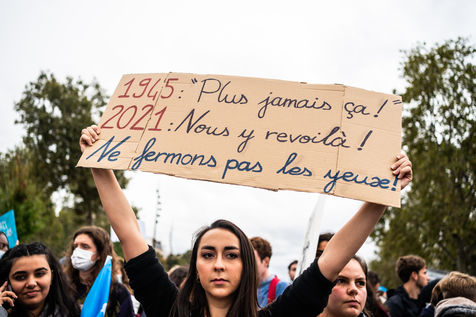 1945: "Plus jamais ça!"
2021: Nous y revoilà!
Ne fermons pas les yeux!